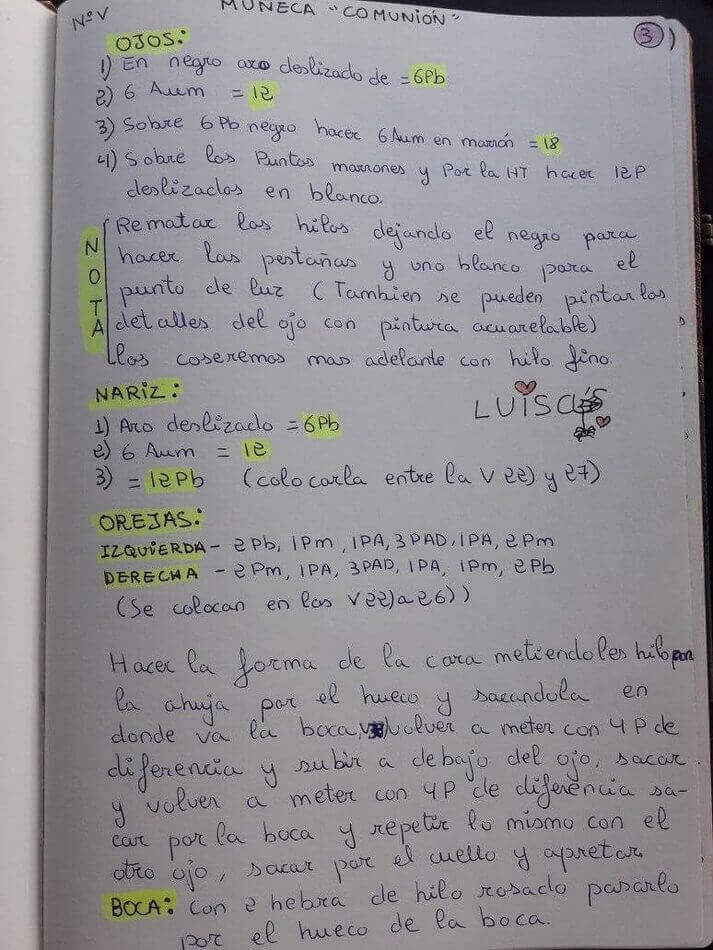 NºV
MUÑECA "COMUNIÓN"
3
OJOS:
1) En negro aro deslizado de = 6Pb
2) 6 Aum = 12
3) Sobre 6Pb negro hacer 6Aum en marrón = 18
4) Sobre los Puntos marrones y Por la HT hacer 12P
deslizados en blanco.
NOTA
Rematar los hilos dejando el negro para
hacer las pestañas y uno blanco para el
punto de luz (Tambien se pueden pintar los
detalles del ojo con pintura acuarelable)
los coseremos mas adelante con hilo fino.
NARIZ:
LUISA
1) Aro deslizado = 6Pb
2) 6 Aum = 12
3) = 12Pb (colocarla entre la V 22) y 27)
OREJAS:
IZQUIERDA - 2Pb, 1Pm, 1PA, 3PAD, 1PA, 2Pm
DERECHA - 2Pm, 1PA, 3PAD, 1PA, 1Pm, 2Pb
(Se colocan en las V22)a 26))
Hacer la forma de la cara metiendoles hilo con
la ahuja por el hueco y sacandola en
donde va la boca, volver a meter con 4P de
diferencia y subir a debajo del ojo, sacar
y volver a meter con 4P de diferencia sa-
car por la boca y repetir lo mismo con el
otro ojo, sacar por el cuello y apretar.
BOCA: Con 2 hebra de hilo rosado pasarlo
por el hueco de la boca.